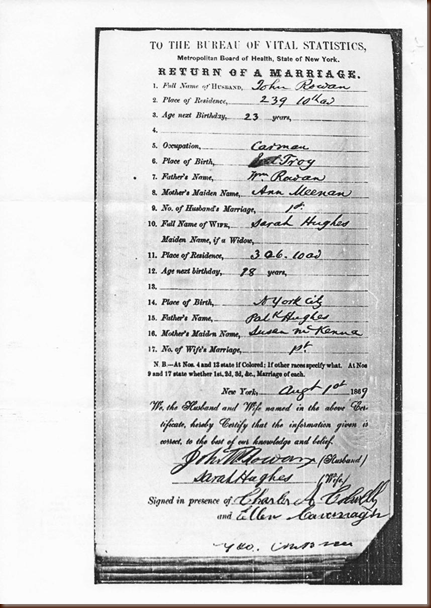 TO THE BUREAU OF VITAL STATISTICS,
Metropolitan Board of Health, State of New York.
RETURN OF A MARRIAGE.
1. Full Name of HUSBAND, John Rowan
2. Place of Residence, 239 10th av
3. Age next Birthday, 23 years,
4.
5. Occupation, Carman
6. Place of Birth, Troy
7. Father's Name, Wm Rowan
8. Mother's Maiden Name, Ann Meenan
9. No. of Husband's Marriage, 1st.
10. Full Name of WIFE, Sarah Hughes
Maiden Name, if a Widow,
11. Place of Residence, 326. 10 av
12. Age next birthday, 28 years,
13.
14. Place of Birth, N York City
15. Father's Name, Patk Hughes
16. Mother's Maiden Name, Susan McKenna
17. No. of Wife's Marriage, 1st.
N. B.—At Nos. 4 and 13 state if Colored; If other races specify what. At Nos
9 and 17 state whether 1st, 2d, 3d, &c., Marriage of each.
New York, Augt 1st 1869
We, the Husband and Wife named in the above Cer-
tificate, hereby Certify that the information given is
correct, to the best of our knowledge and belief.
John Rowan (Husband)
Sarah Hughes (Wife)
Signed in presence of Charles A
and Ellen Cavenagh